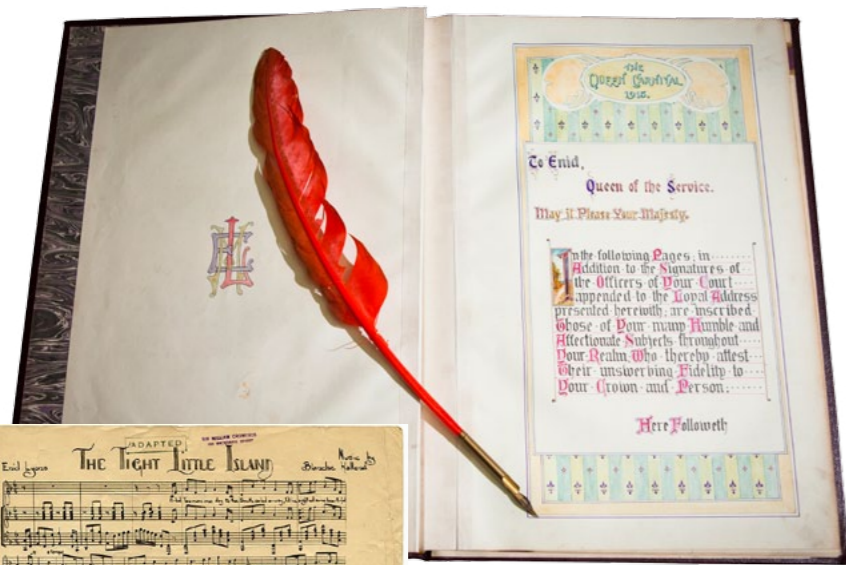 THE
QUEEN CARNIVAL
1915.
To Enid,
Queen of the Service.
May it Please Your Majesty.
In the following Pages, in
Addition to the Signatures of
the Officers of Your Court
appended to the Loyal Address
presented herewith; are inscribed
Those of Your many Humble and
Affectionate Subjects throughout
Your Realm Who thereby attest
Their unswerving Fidelity to
Your Crown and Person:
Here Followeth
ADAPTED
Enid Lyons THE TIGHT LITTLE ISLAND Music by